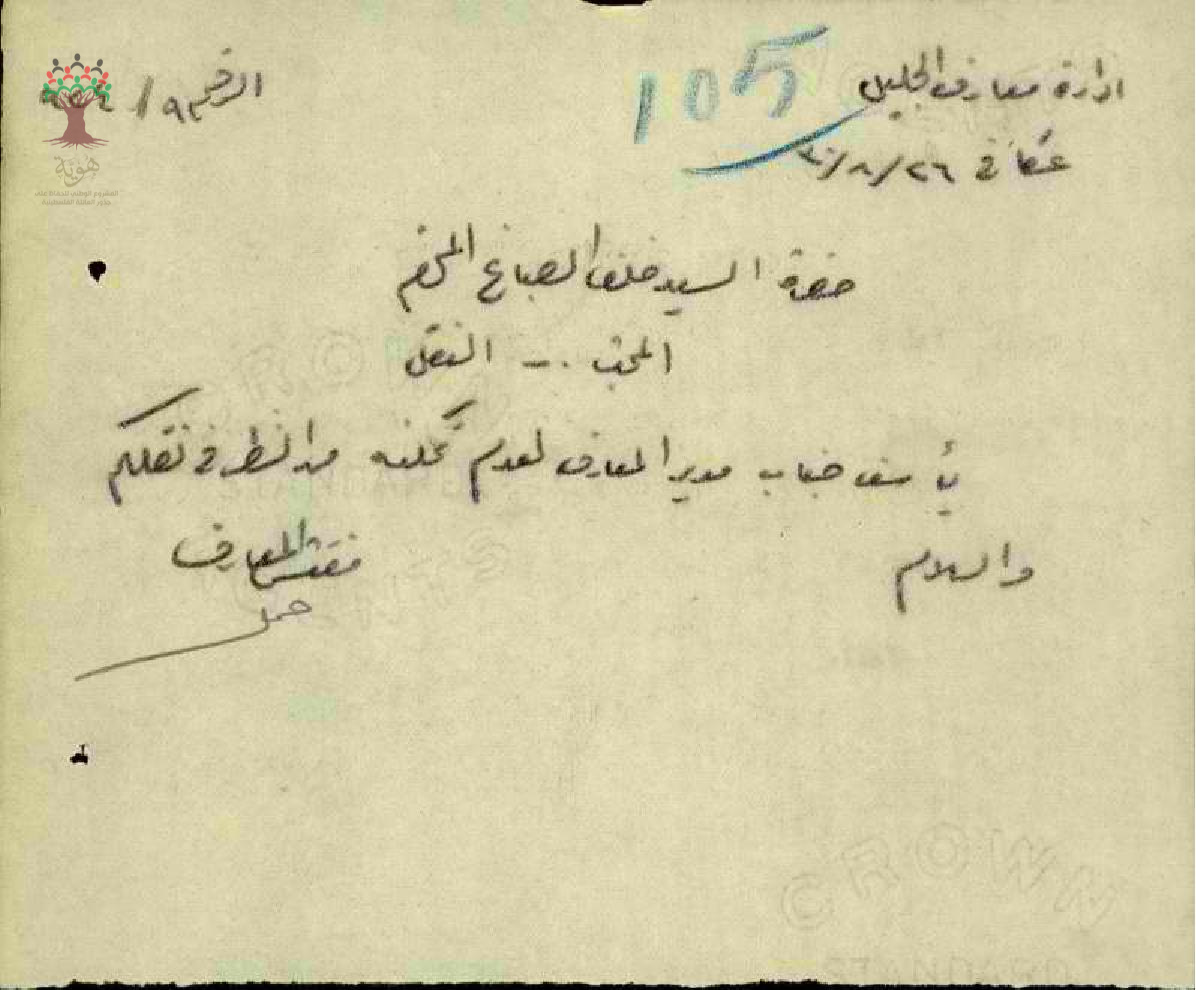 ادارة معارف الجليل
عكا في ٢٦/٨/٣٠
105
الرقم ٩/
حضرة السيد خلف الصباغ المحترم
المبحث .- النقل
يأسف جناب مدير المعارف لعدم تمكنه من النظر في نقلكم
والسلام
مفتش المعارف
هوية
المشروع الوطني للحفاظ على
جذور العائلة الفلسطينية
CROWN
STANDARD
CROWN
STANDARD